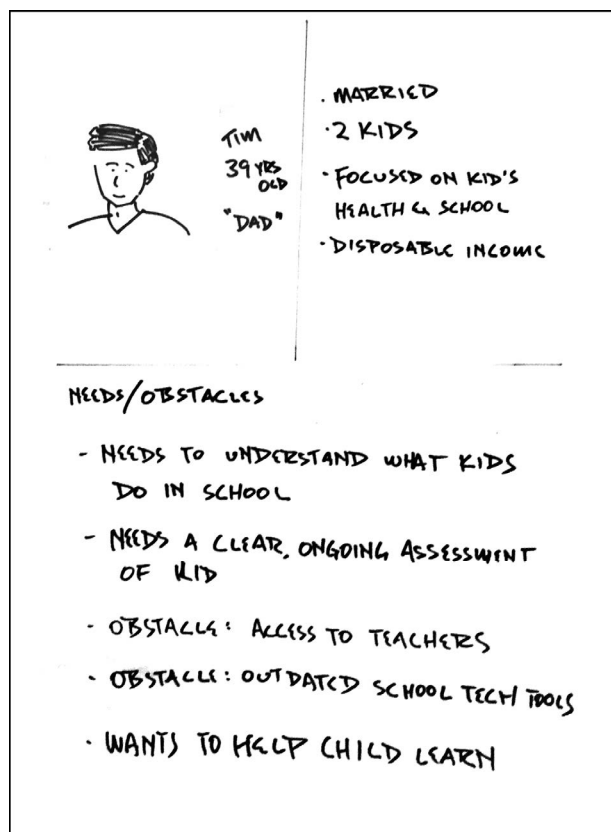 TIM
39 YRS
OLD
"DAD"
· MARRIED
· 2 KIDS
· FOCUSED ON KID'S
HEALTH & SCHOOL
· DISPOSABLE INCOME
NEEDS/OBSTACLES
- NEEDS TO UNDERSTAND WHAT KIDS
DO IN SCHOOL
- NEEDS A CLEAR, ONGOING ASSESSMENT
OF KID
- OBSTACLE: ACCESS TO TEACHERS
· OBSTACLE: OUTDATED SCHOOL TECH TOOLS
· WANTS TO HELP CHILD LEARN